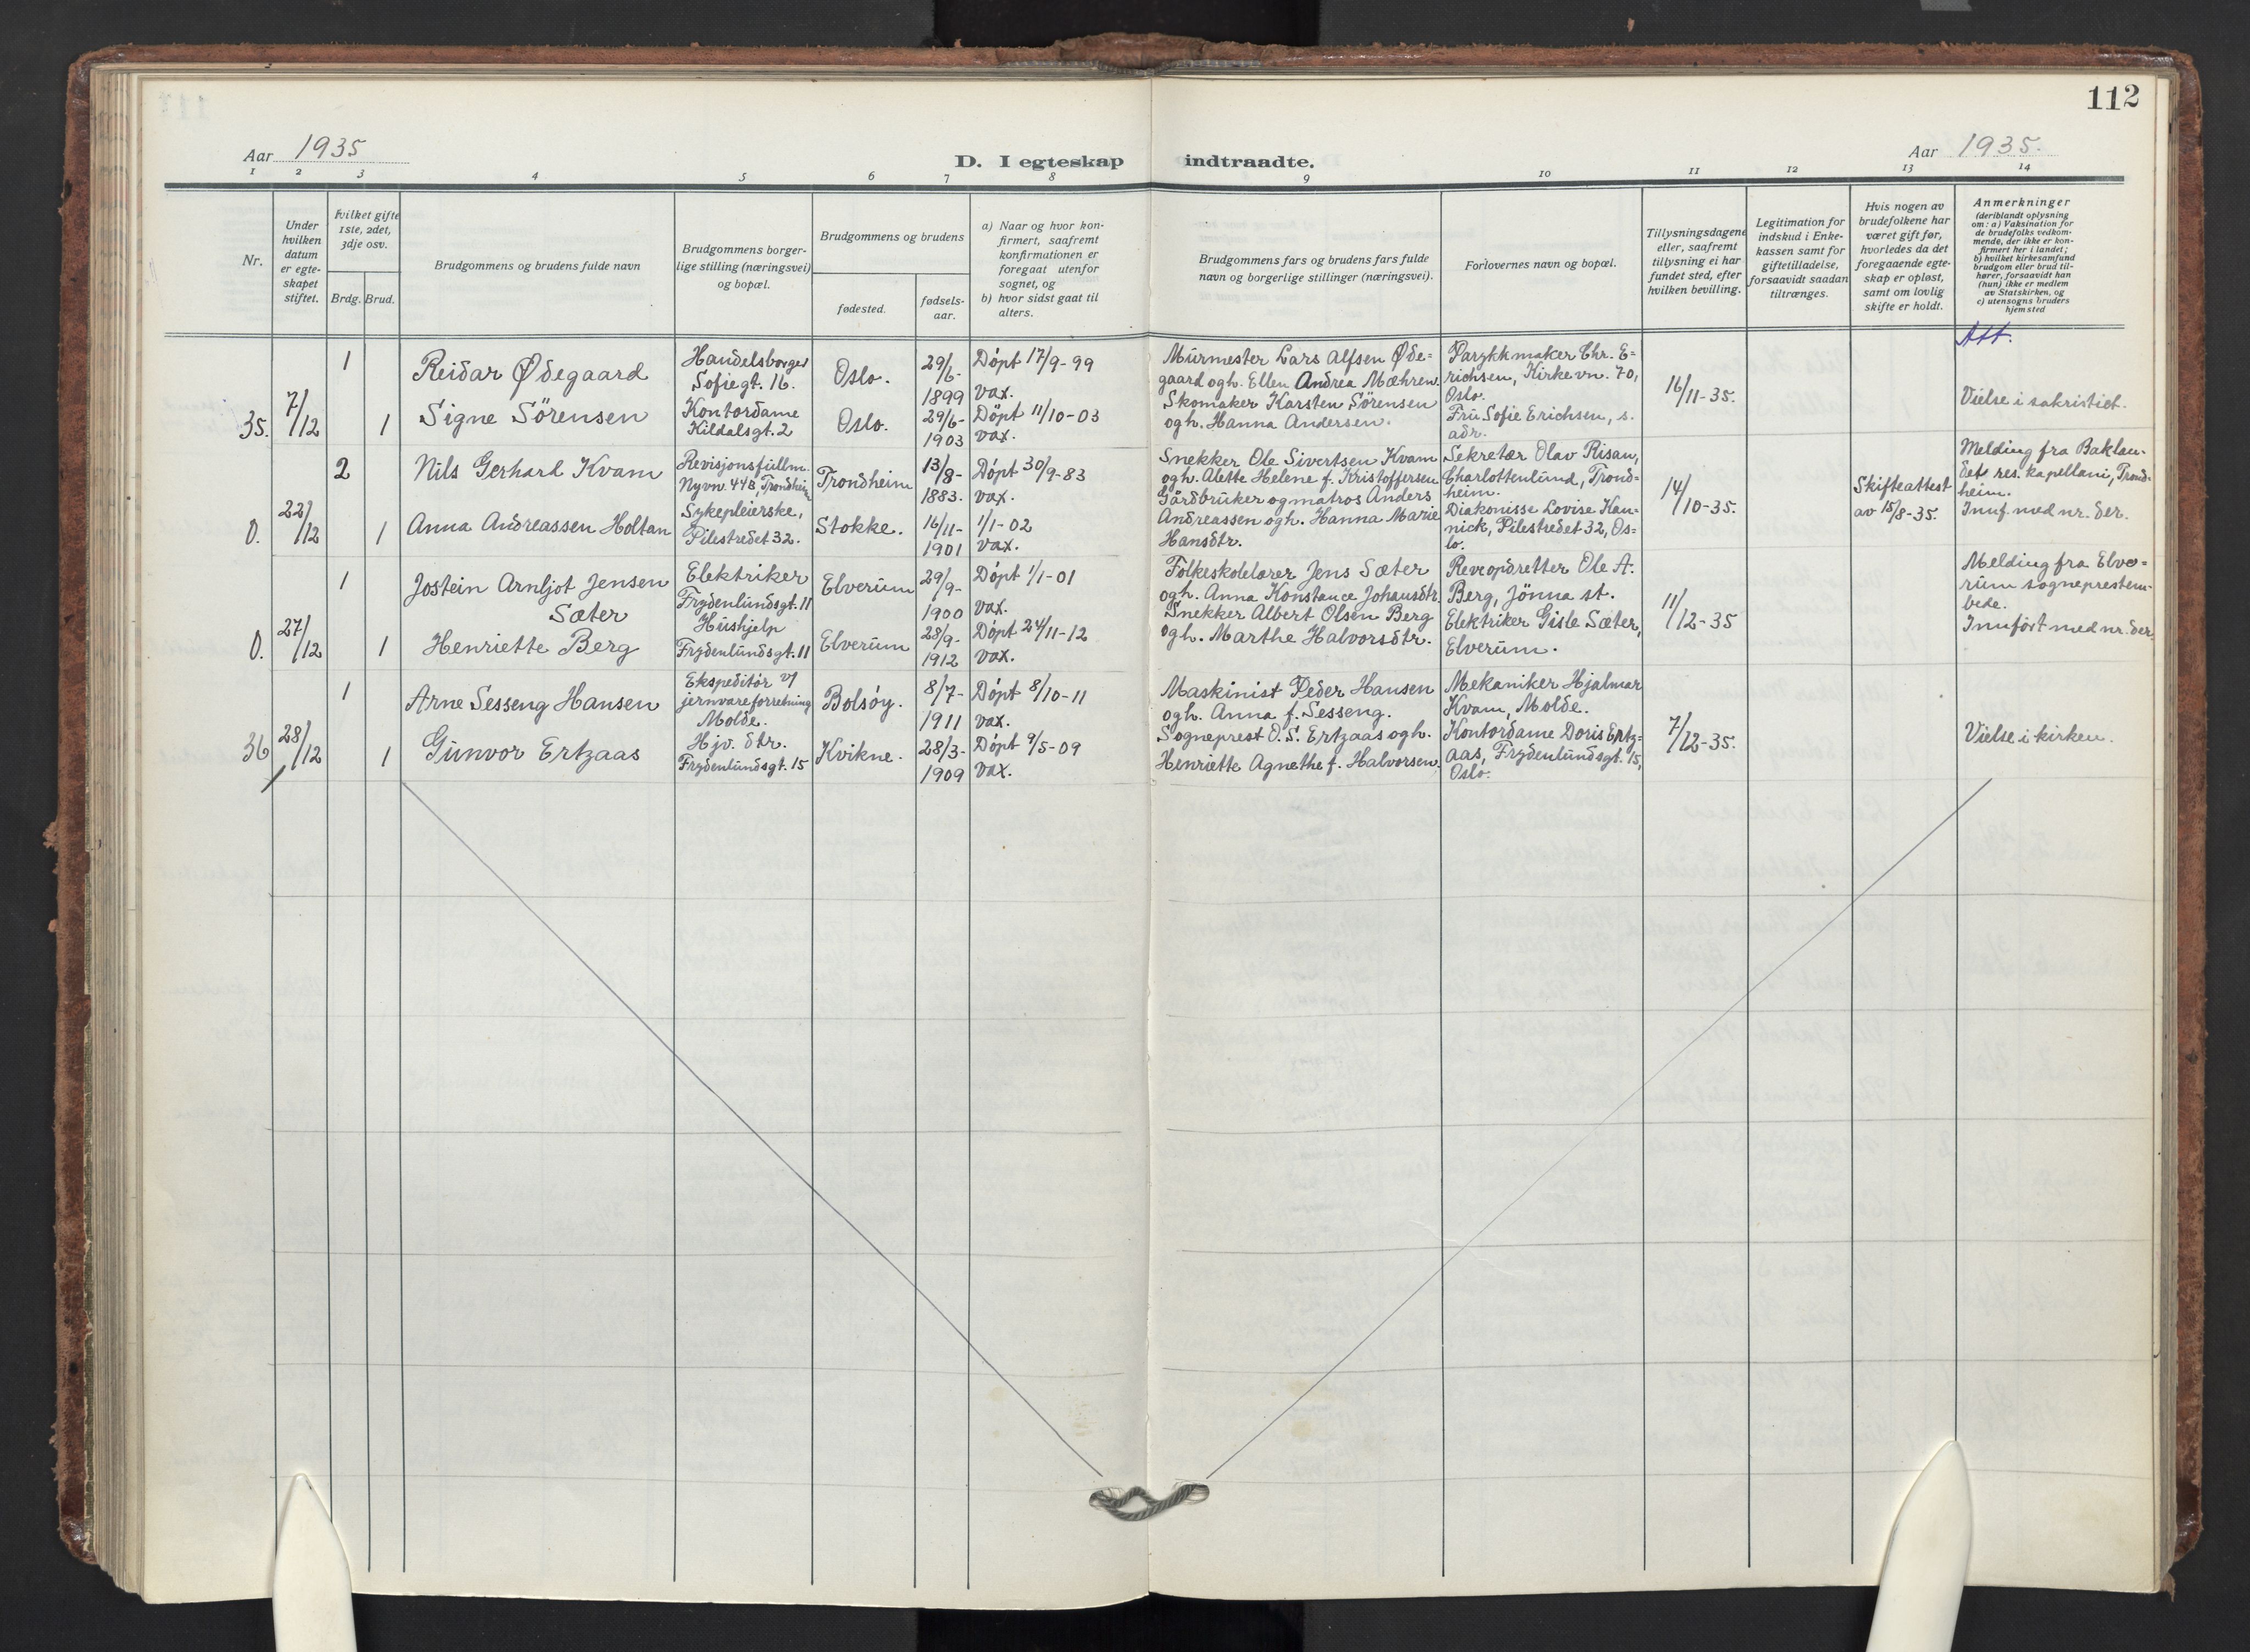 112
Aar 1935
D. I egteskap indtraadte.
Aar 1935.
1 2 3 4 5 6 7 8 9 10 11 12 13 14
Nr.
Under
hvilken
datum
er egte-
skapet
stiftet.
hvilket gifte
1ste, 2det,
3dje osv.
Brdg. Brud.
Brudgommens og brudens fulde navn
Brudgommens borger-
lige stilling (næringsvei)
og bopæl.
Brudgommens og brudens
fødested.
fødsels-
aar.
a) Naar og hvor kon-
firmert, saafremt
konfirmationen er
foregaat utenfor
sognet, og
b) hvor sidst gaat til
alters.
Brudgommens fars og brudens fars fulde
navn og borgerlige stillinger (næringsvei).
Forlovernes navn og bopæl.
Tillysningsdagene
eller, saafremt
tillysning ei har
fundet sted, efter
hvilken bevilling.
Legitimation for
indskud i Enke-
kassen samt for
giftetilladelse,
forsaavidt saadan
tiltrænges.
Hvis nogen av
brudefolkene har
været gift før,
hvorledes da det
foregaaende egte-
skap er opløst,
samt om lovlig
skifte er holdt.
Anmerkninger
(deriblandt oplysning
om: a) Vaksination for
de brudefolks vedkom-
mende, der ikke er kon-
firmert her i landet;
b) hvilket kirkesamfund
brudgom eller brud til-
hører, forsaavidt han
(hun) ikke er medlem
av Statskirken, og
c) utensogns bruders
hjemsted
Att.
35. 7/12
1
Reidar Ødegaard
Handelsborger
Sofiegt. 16.
Oslo.
29/6-
1899
Döpt 17/9-99
vax.
Murmester Lars Alfsen Øde=
gaard og h. Ellen Andrea Mæhren.
Parykkmaker Chr. E=
richsen, Kirkevn. 70,
Oslo.
16/11-35.
Vielse i sakristiet.
1
Signe Sörensen
Kontordame
Kildalsgt. 2
Oslo.
29/6-
1903
Döpt 11/10-03
vax.
Skomaker Karsten Sörensen
og h. Hanna Andersen.
Fru Sofie Erichsen, s.
adr.
0. 22/12
2
Nils Gerhard Kvam
Revisjonsfullm.
Nyvn. 44B, Trondheim
Trondheim
13/8-
1883.
Döpt 30/9-83
vax.
Snekker Ole Sivertsen Kvam
og h. Alette Helene f. Kristoffersen
Sekretær Olav Risan,
Charlottenlund, Trond=
heim.
14/10-35.
Skifteattest
av 15/8-35.
Melding fra Baklan-
det res. kapellani, Trond-
heim.
Innf. med nr. der.
1
Anna Andreassen Holtan
Sykepleierske,
Pilestredet 32.
Stokke.
16/11-
1901
1/1-02
vax.
Gårdbruker og matros Anders
Andreassen og h. Hanna Marie
Hansdtr.
Diakonisse Lovise Kau-
nick, Pilestredet 32, Os-
lo.
0. 27/12
1
Jostein Arnljot Jensen
Sæter
Elektriker
Frydenlundsgt. 11
Elverum
29/9-
1900
Döpt 1/1-01
vax.
Folkeskolelærer Jens Sæter
og h. Anna Konstance Johansdtr.
Reveopdretter Ole A.
Berg, Jönna st.
11/12-35
Melding fra Elve=
rum sogneprestem-
bede.
Innfört med nr. der.
1
Henriette Berg
Hushjelp
Frydenlundsgt. 11
Elverum
28/9-
1912
Döpt 24/11-12
vax.
Snekker Albert Olsen Berg
og h. Marthe Halvorsdtr.
Elektriker Gisle Sæter,
Elverum.
36 28/12
1
Arne Sesseng Hansen
Ekspeditör v/
jernvareforretning
Molde.
Bolsöy.
8/7-
1911
Döpt 8/10-11
vax.
Maskinist Peder Hansen
og h. Anna f. Sesseng.
Mekaniker Hjalmar
Kvam, Molde.
7/12-35.
Vielse i kirken.
1
Gunvor Ertzaas
Hjv. dtr.
Frydenlundsgt. 15
Kvikne.
28/3-
1909
Döpt 9/5-09
vax.
Sogneprest O. S. Ertzaas og h.
Henriette Agnethe f. Halvorsen.
Kontordame Doris Ertz=
aas, Frydenlundsgt. 15,
Oslo.